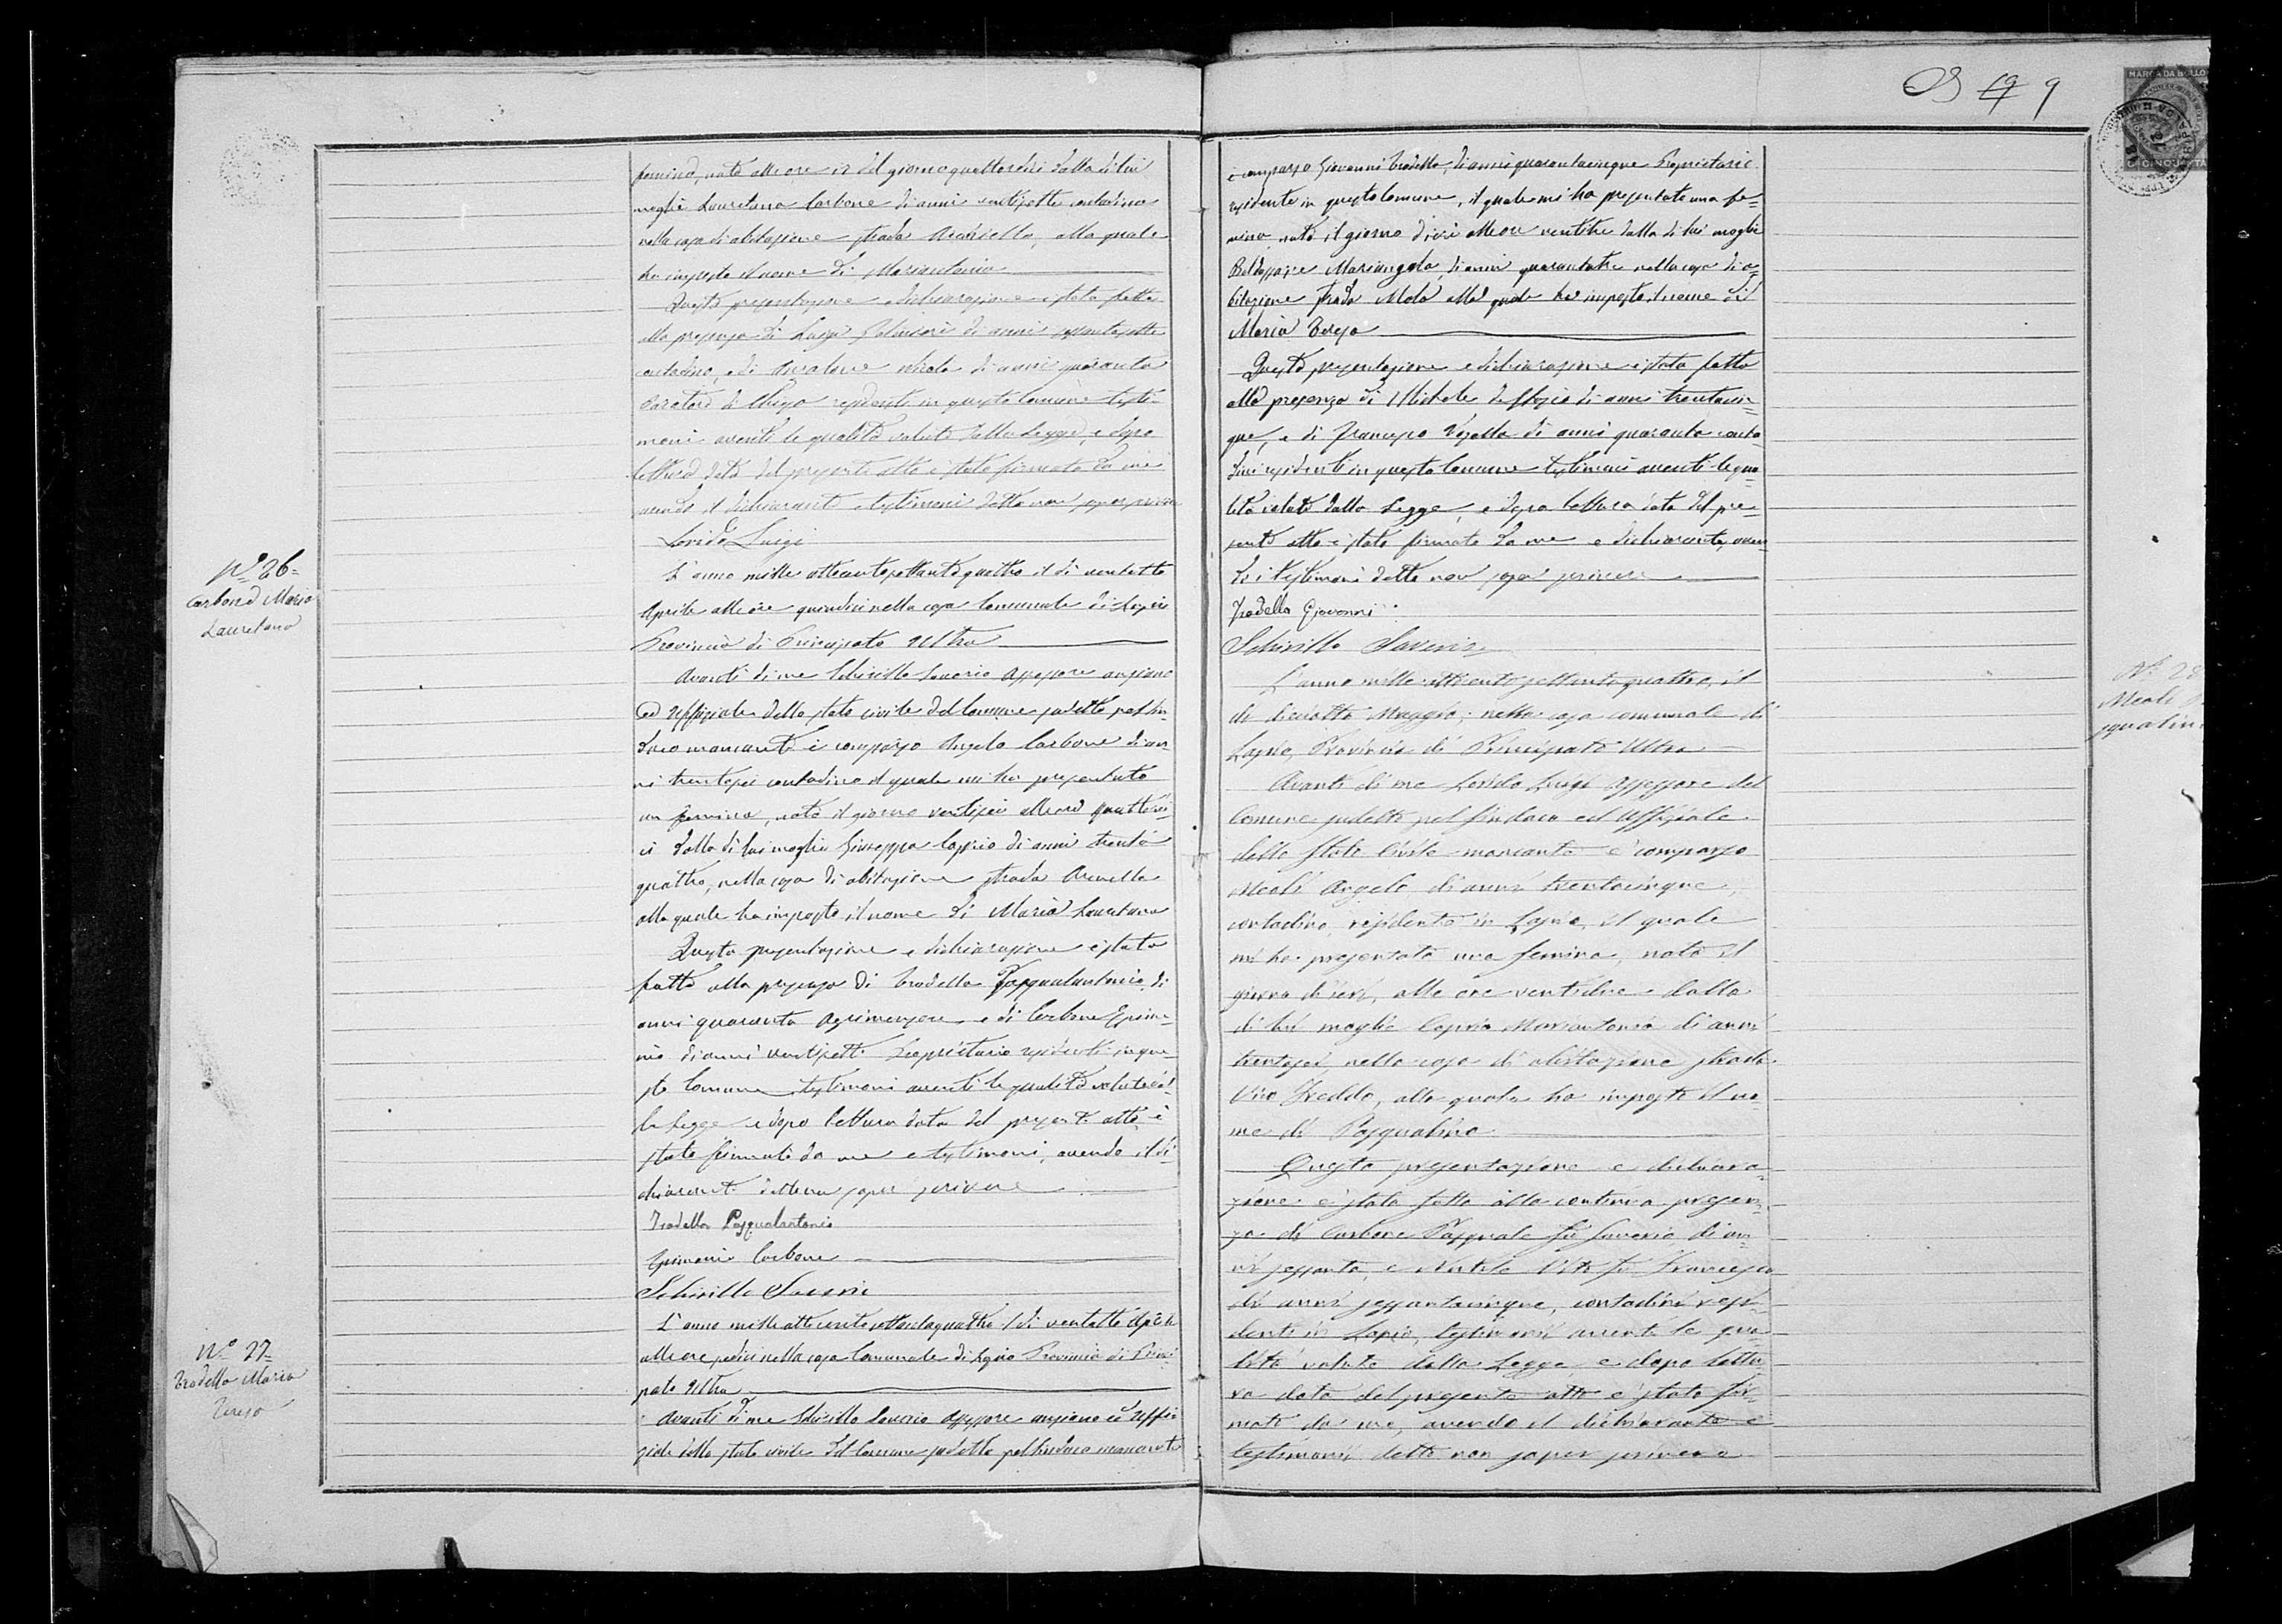 femina, nata alle ore 12 del giorno quattordici dalla di lui
moglie Lauretana Carbone di anni ventisette contadina
nella casa di abitazione strada Archiello, alla quale
ha imposto il nome di Mariantonia
Questa presentazione e dichiarazione è stata fatta
alla presenza di Luigi di anni sessantasette
contadino, e di di anni quaranta
residenti in questo Comune testi-
moni aventi le qualità volute dalla Legge, e dopo
lettura data del presente atto è stato firmato da me
avendo il dichiarante e testimoni detto non saper scrivere
Lorido Luigi
Nº 26=
Carbone Maria
Lauretana
L'anno mille ottocentosettantaquattro il dì ventotto
Aprile alle ore quindici nella casa Comunale di Lapio
Provincia di Principato Ultra
Avanti di me Schirillo Saverio Assessore anziano
ed Uffiziale dello stato civile del Comune sudetto pel Sin-
daco mancante è comparso Angelo Carbone di an-
ni trentasei contadino il quale mi ha presentato
un femina, nata il giorno ventisei alle ore quattordi-
ci dalla di lui moglie Giuseppa Caprio di anni trenta
quattro, nella casa di abitazione strada
alla quale ha imposto il nome di Maria Lauretana
Questa presentazione e dichiarazione è stata
fatta alla presenza di Tradella Pasqualantonio di
anni quaranta Agrimensore e di Carbone Epime-
nio di anni ventisette Proprietario residenti in que-
sto Comune testimoni aventi le qualità volute dal-
la Legge e dopo lettura data del presente atto è
stato firmato da me e testimoni, avendo il di-
chiarante detto non saper scrivere
Tradella Pasqualantonio
Epimenio Carbone
Schirillo Saverio
Nº 27=
Tradella Maria
Teresa
L'anno mille ottocentosettantaquattro il dì ventotto Aprile
alle ore sedici nella casa Comunale di Lapio Provincia di Princi-
pato Ultra
Avanti di me Schirillo Saverio Assessore anziano ed Uffi-
ziale dello stato civile del Comune sudetto pel Sindaco mancante
9
MARCA DA BOLLO
è comparso Giovanni Tradella, di anni quarantacinque Proprietario
residente in questo Comune, il quale mi ha presentato una fe-
mina nata il giorno di ieri alle ore ventitre dalla di lui moglie
Baldassarre Mariangela, di anni quarantatre nella casa di a-
bitazione strada Mola alla quale ha imposto il nome di
Maria Teresa
Questa presentazione e dichiarazione è stata fatta
alla presenza di Michele di anni trentacin-
que, e di Francesco di anni quaranta conta-
dini residenti in questo Comune testimoni aventi le qua-
lità volute dalla Legge, e dopo lettura data del pre-
sente atto è stato firmato da me e dichiarante, aven-
do i testimoni detto non saper scrivere
Tradella Giovanni
Schirillo Saverio
Nº 28
Meoli
squalin
L'anno mille ottocento settanta quattro, il
dì diciotto Maggio, nella casa comunale di
Lapio, Provincia di Principato Ultra
Avanti di me Lorido Luigi Assessore del
Comune sudetto pel Sindaco ed Uffiziale
dello Stato Civile mancante è comparso
Meoli Angelo di anni trentacinque,
contadino, residente in Lapio, il quale
mi ha presentata una femina, nata il
giorno di ieri, alle ore ventidue dalla
di lui moglie Caprio Mariantonia di anni
trentasei, nella casa di abitazione strada
Vico Freddo, alla quale ha imposto il no-
me di Pasqualina
Questa presentazione e dichiara-
zione è stata fatta alla continua presen-
za di Carbone Pasquale fu Saverio di an-
ni sessanta, e Vito fu Francesco
di anni sessantacinque, contadini resi-
denti in Lapio, testimoni aventi le qua-
lità volute dalla Legge e dopo lettu-
ra data del presente atto è stato fir-
mato da me, avendo il dichiarante e
testimonii detto non saper scrivere